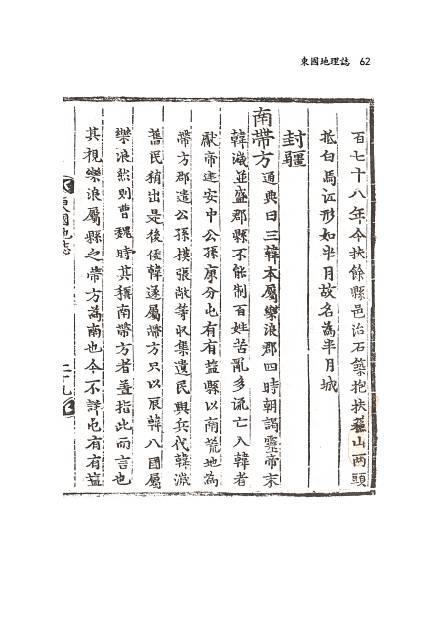 東國地理誌 62
百七十八年今扶餘縣邑治石築抱扶蘓山兩頭
抵白馬江形如半月故名為半月城
封疆
南帶方通典曰三韓本屬樂浪郡四時朝謁靈帝末
韓濊並盛郡縣不能制百姓苦亂多流亡入韓者
獻帝建安中公孫康分屯有有盐縣以南荒地為
帶方郡遣公孫摸張敞等収集遺民興兵伐韓濊
舊民稍出是後倭韓遂屬帶方只以辰韓八國屬
樂浪然則曹魏時其稱南帶方者盖指此而言也
其視樂浪屬縣之帶方為南也今不詳屯有有盐
東國地誌
二十九